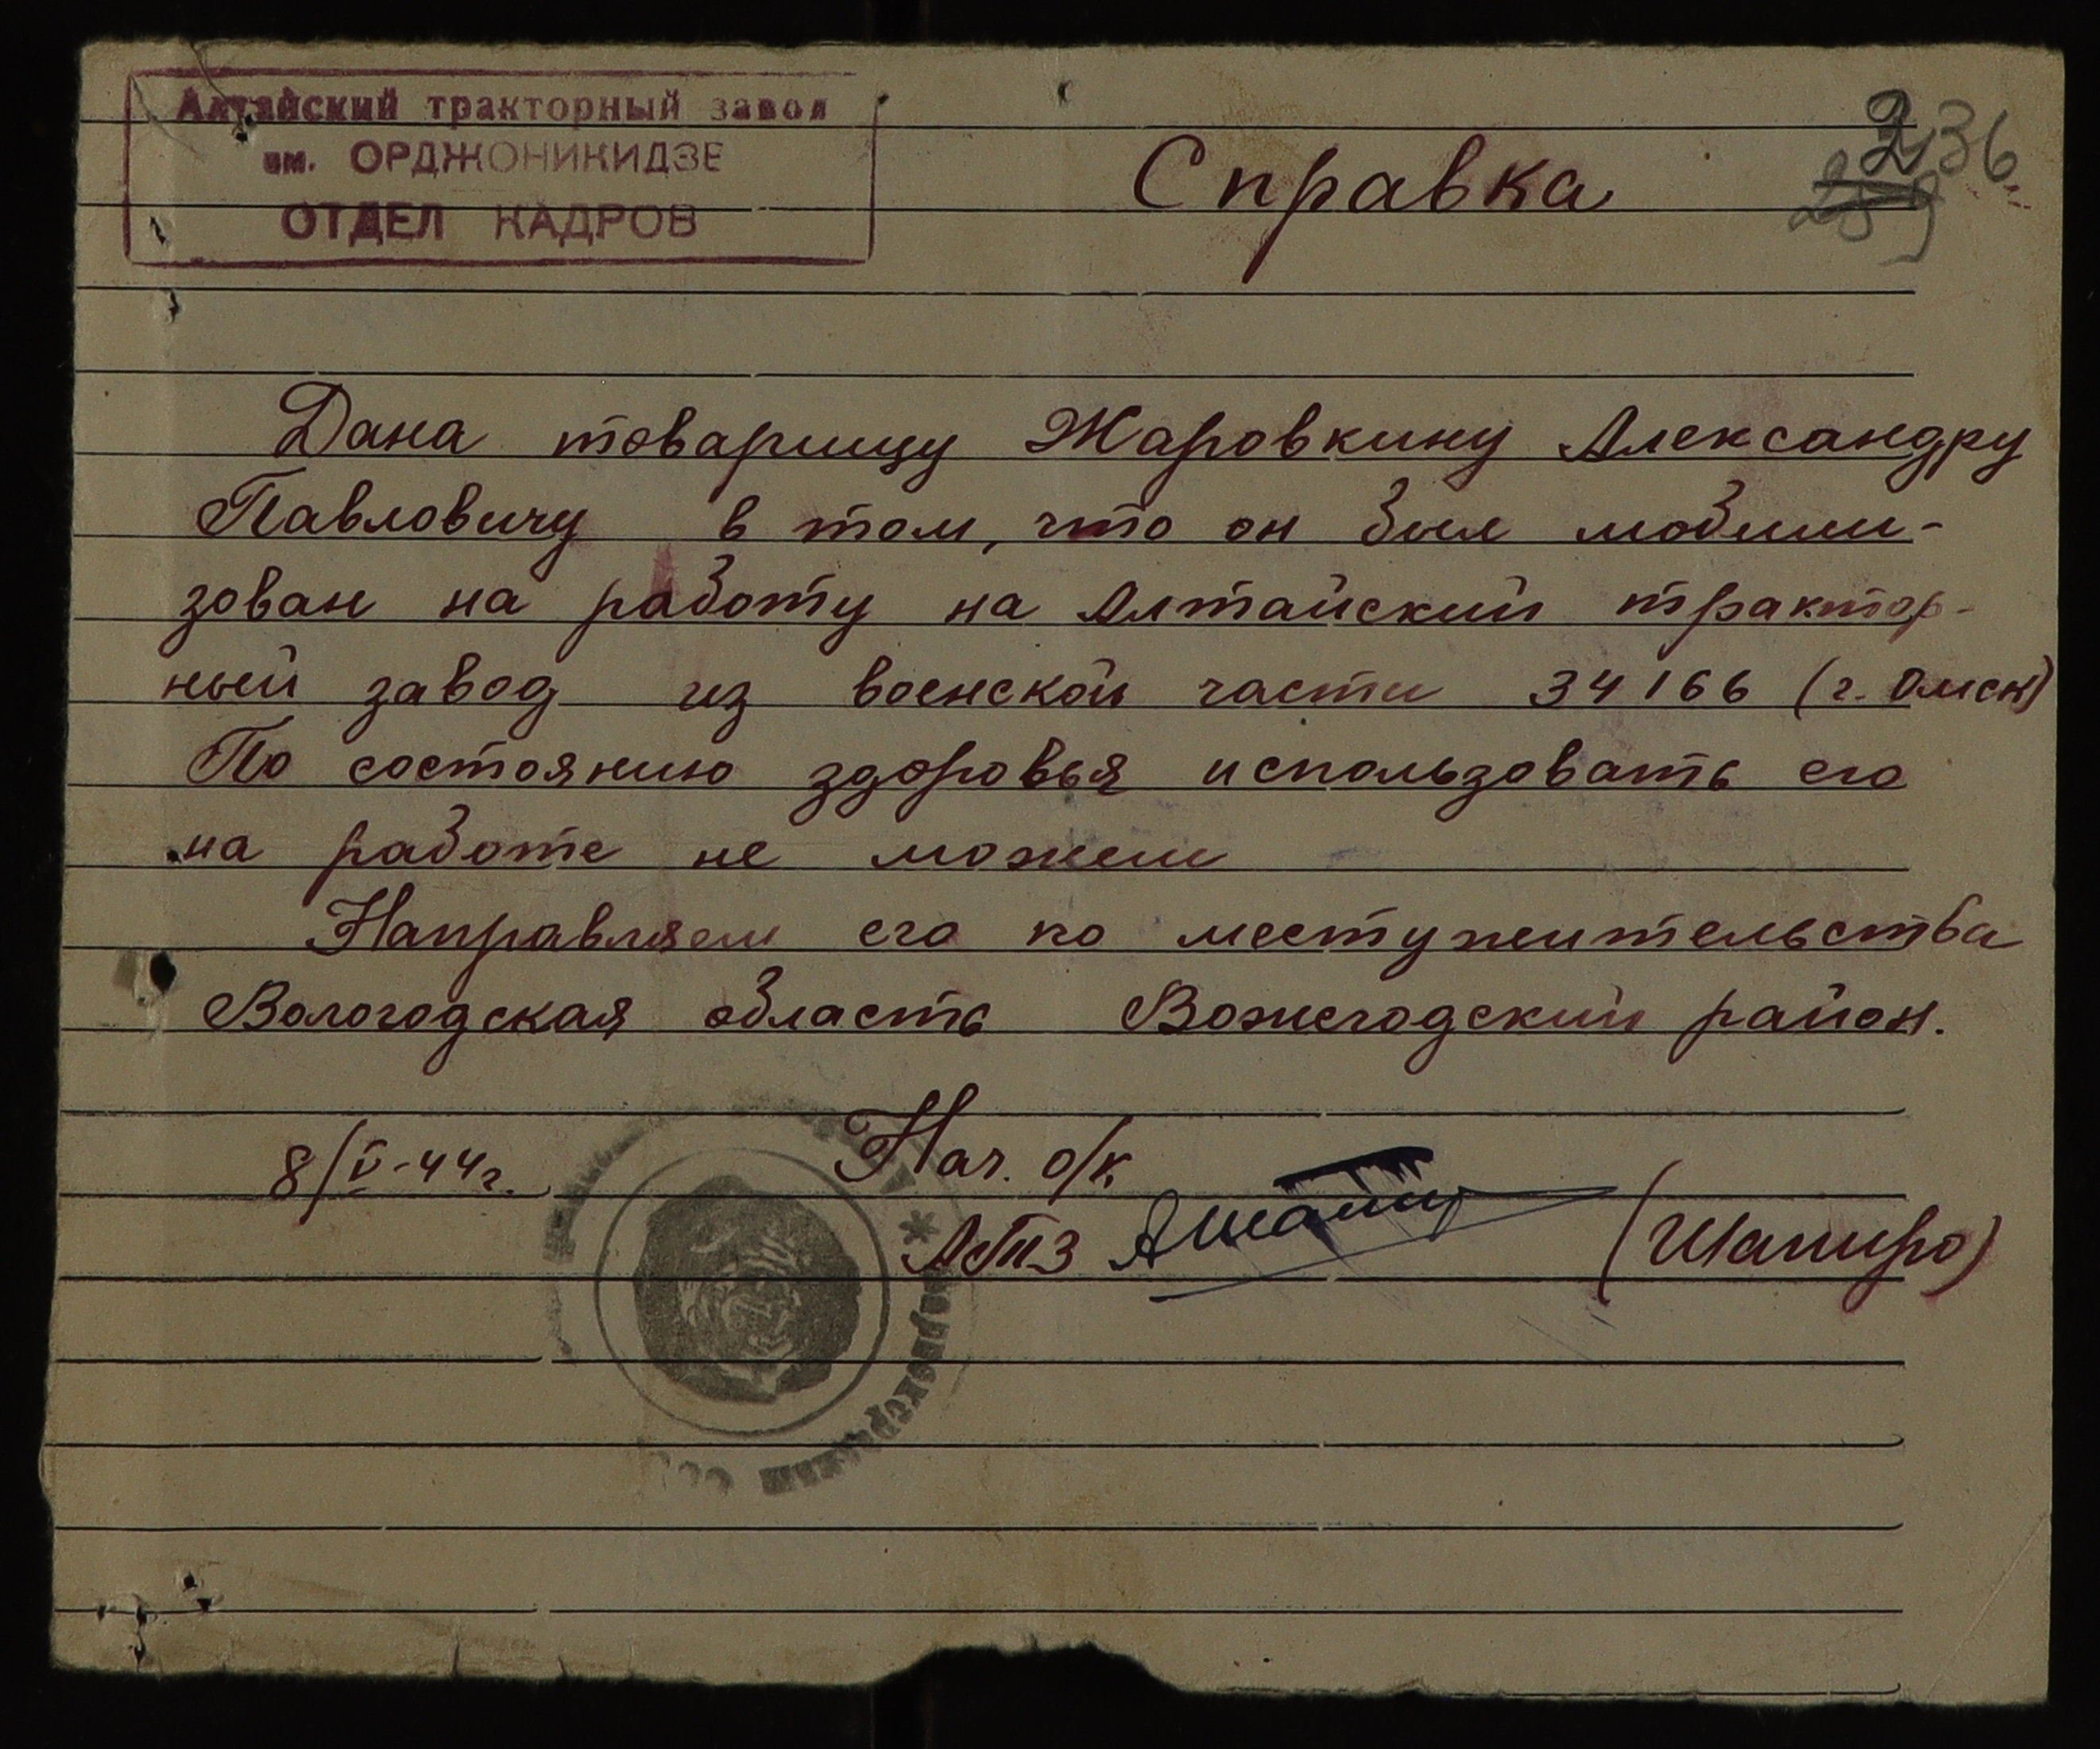 Алтайский тракторный завод
им. ОРДЖОНИКИДЗЕ
ОТДЕЛ КАДРОВ
236
Справка
Дана товарищу Жаровкину Александру
Павловичу в том, что он был мобили-
зован на работу на Алтайский трактор-
ный завод из воинской части 34166 (г. Омск)
По состоянию здоровья использовать его
на работе не можем
Направляем его по месту жительства
Вологодская область Вожегодский район.
8/V-44г. Нач. о/к
АТЗ (Шапиро)